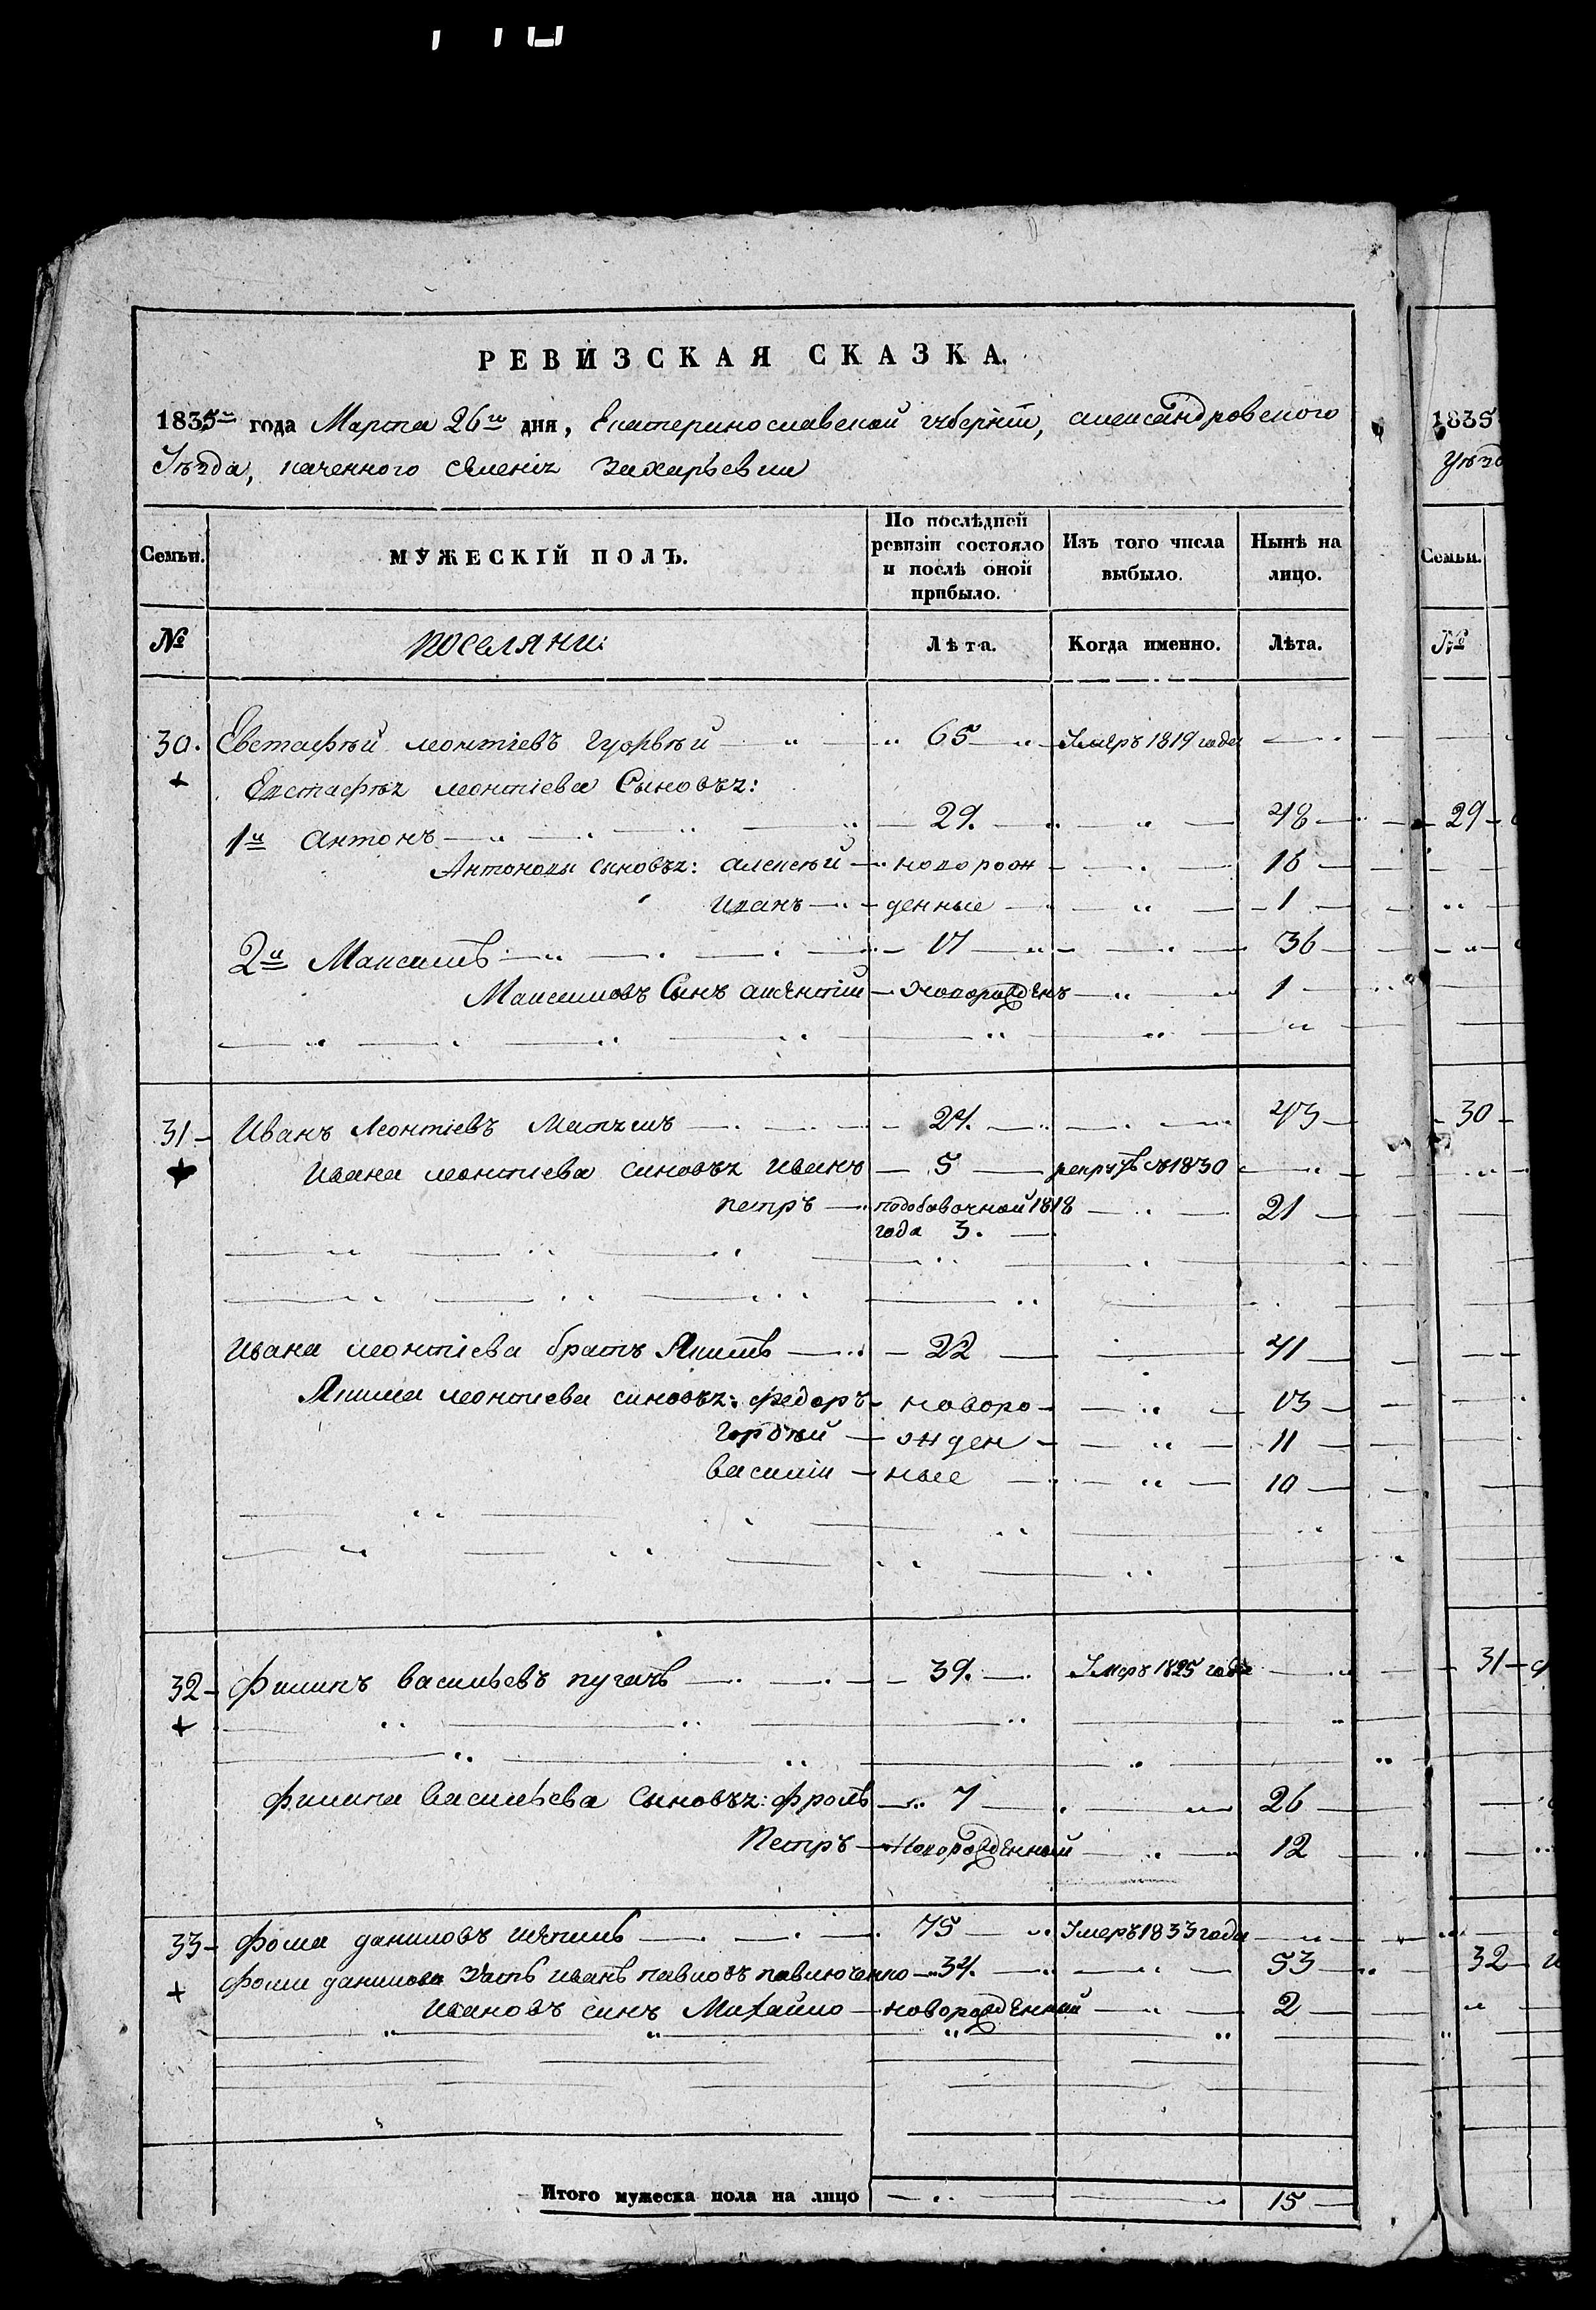 РЕВИЗСКАЯ СКАЗКА.
1835го года Марта 26го дня, Екатеринославской губерніи, александровского
Уѣзда, казенного селенія Захарьевки
Семьи. МУЖЕСКІЙ ПОЛЪ. По послѣдней ревизіи состояло и послѣ оной прибыло. Изъ того числа выбыло. Нынѣ на лицо.
№ поселяни: Лѣта. Когда именно. Лѣта.
30. Евстафѣй леонтіевъ 65 Умеръ 1819 года
Евстафѣя леонтіева Сыновья:
1й антонъ 29. 48
Антоновы сыновья: алексѣй новорож 16
Иванъ денные 1
2й Максимъ 17 36
Максимовъ Сынъ новорожденъ 1
31 Иванъ Леонтіевъ 24. 43
Ивана леонтіева синовья иванъ 5 рекрутъ съ 1830
петръ подобавочной 1818 21
года 3.
Ивана леонтіева братъ Якимъ 22 41
Якима леонтіева синовья: федоръ новоро 13
Гордѣй жден 11
василіи ные 10
32 Филипъ васильевъ пугачъ 39. Умеръ 1825 года
филипа Васильева Сыновья: фролъ 7 26
Петръ Новорожденный 12
33 фома даниловъ 75 Умеръ 1833 года
фоми данилова Зать иванъ павловъ павлюченко 34. 53
Ивановъ синъ Михайло новорожденный 2
Итого мужеска пола на лицо 15
1835
Уѣзд
Семьи.
№
29
30
31
32